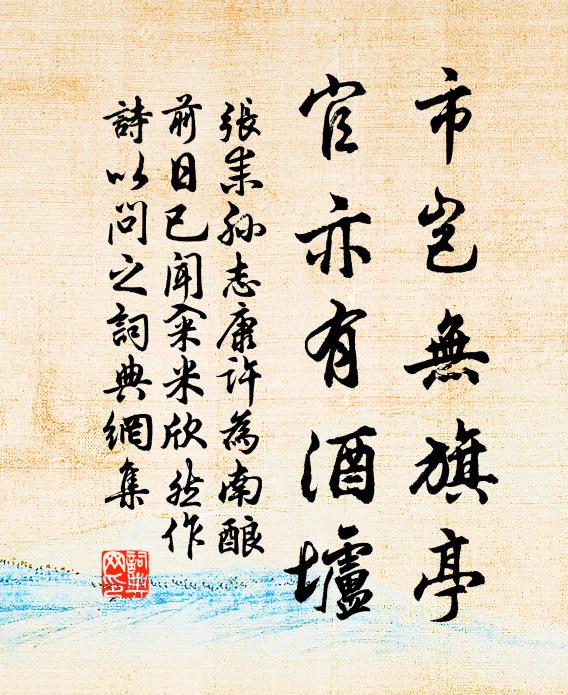 市岂無旗亭
官亦有酒壚
張耒孙志康许為南酿
前日已闻籴米欣然作
詩以問之詞典網集